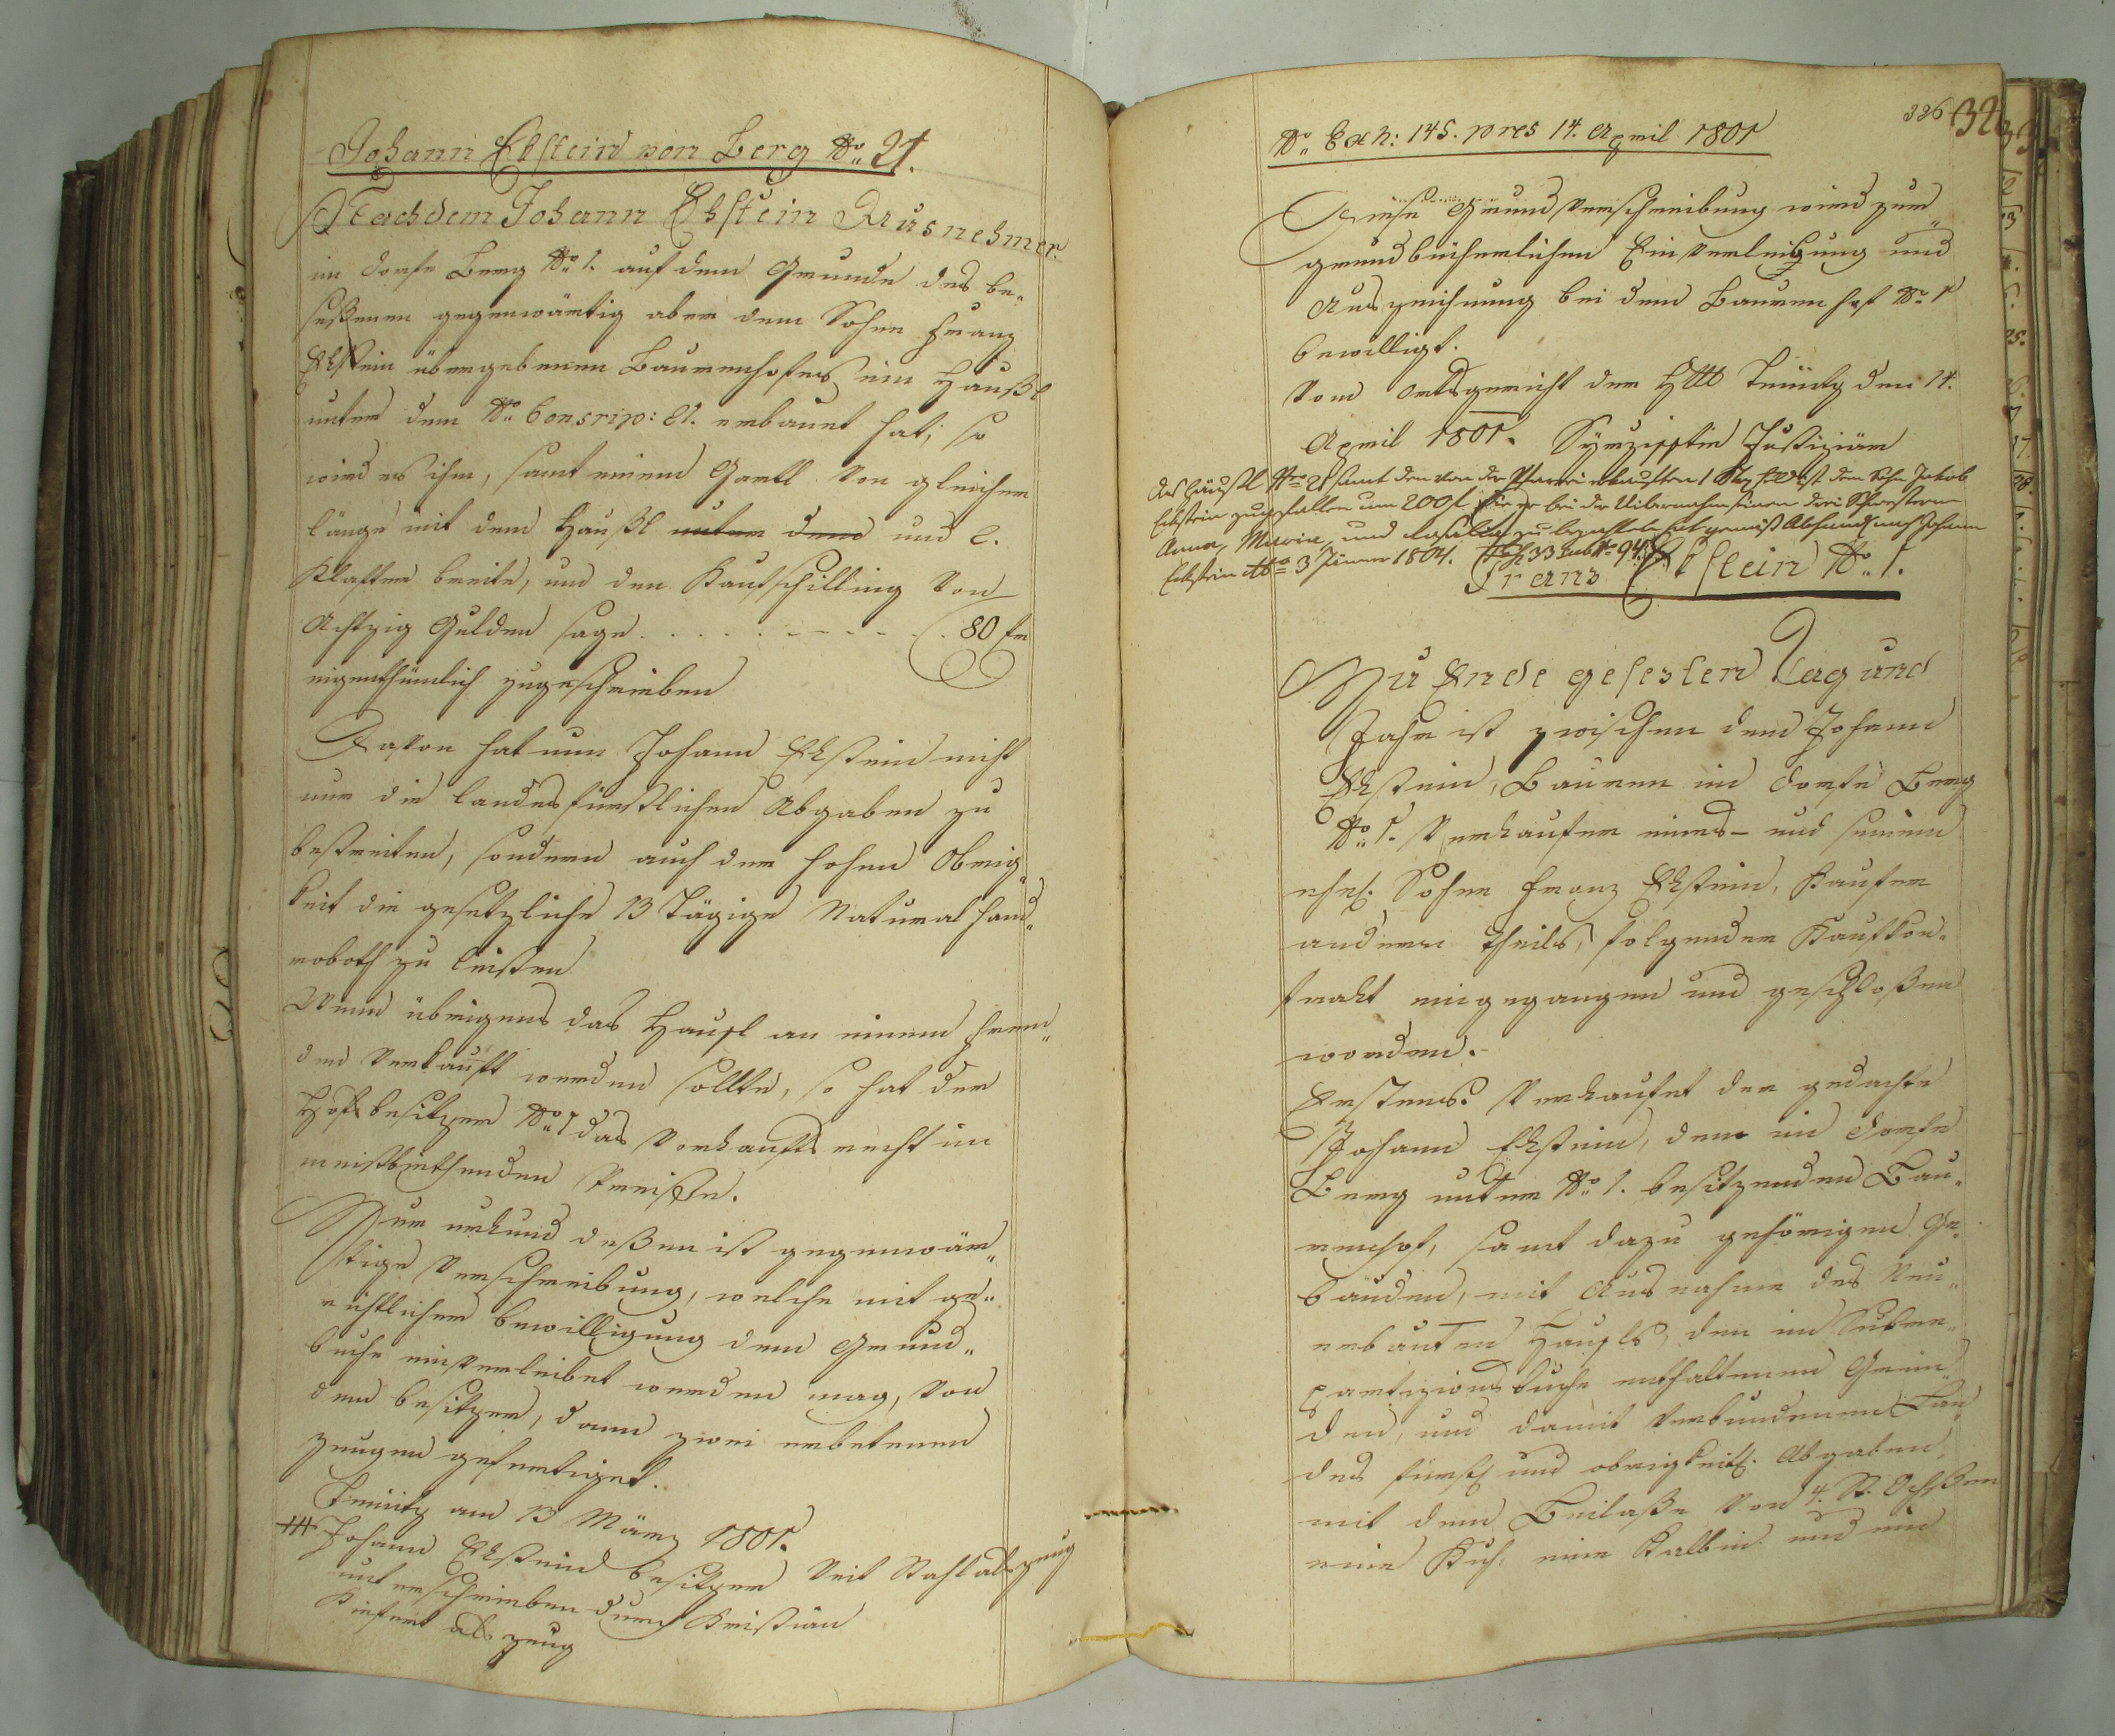 Johann Ekstein von Berg No. 21.
Nachdem Johann Ekstein Ausnehmer
im Dorfe Berg No. 1. auf dem Grunde des be-
seßenen gegenwärtig aber dem Sohne Franz
Ekstein übergebenen Bauernhofes ein Haußl
unter dem No. Conscrip: 21. erbauet hat; so
wird es ihm, samt einem Gartl von gleicher
länge mit dem Haußl unter dem und 2.
Klafter breite, um den Kaufschilling von
Achtzig Gulden sage . . . . . . . . . 80 fr
eigenthümlich zugeschrieben
Davon hat nun Johann Ekstein nicht
nur die landesfürstlichen Abgaben zu
bestreiten, sondern auch der hohen Obrig-
keit die gesetzliche 13 tägige Natural Hand-
roboth zu leisten
Wenn übrigens das Haußl an einem Frem-
den verkauft werden sollte, so hat der
Hofsbesitzer No. 1 das Vorkaufsrecht im
meistbiethenden Preiße.
Zur urkund deßen ist gegenwär-
tige Verschreibung, welche mit ge-
richtlicher bewilligung dem Grund-
buche einverleibet werden mag, von
dem besitzer, dann zwei erbetenen
zeugen gefertiget.
am 13 März 1801.
+++ Johann Ekstein besitzer Veit als zeug
unterschrieben durch Kristian
als zeug
326
No. Exh: 145. pres 14. April 1801
Diese Grundverschreibung wird zur
grundbücherlichen Einverleibung und
Auszeichnung bei dem Bauern hof No. 1
bewilligt.
Vom Ortsgericht der den 14.
April 1801. Justiziär
das Häusl No 21 samt den von der erkauften 1 ist dem Sohn Jakob
Eckstein zugefallen um 200 f die er bei der Uibernahm seinen drei Schwestern
Anna, Maria, und Rosalia zu bezahlen hat gemäß Abhandlung Johann
Eckstein dto 3 Jänner 1804. 33 sub No 94.
Franz Ekstein No. 1.
Zu Ende gesezten Tag und
Jahr ist zwischen dem Johann
Ekstein, Bauern im Dorfe Berg
No. 1. Verkaufer eines- und seinem
ehel. Sohne Franz Ekstein, Kaufer
andern theils, folgender Kaufkon-
trakt eingegangen und geschloßen
worden.
Erstens: Verkaufet der gedachte
Johann Ekstein, den im Dorfe
Berg unter No. 1. besitzenden Bau-
ernhof, samt dazu gehörigen Ge-
bäuden, mit Ausnahme des Neu-
erbauten Haußls, den im Subre-
partizionsbuche enthaltenen Grün-
den, und damit verbundenen Lan-
desfürstl. und obrigkeitl. Abgaben,
mit dem Beilaße von 4. St. Ochßen
eine Kuh, eine Kalbin und ein